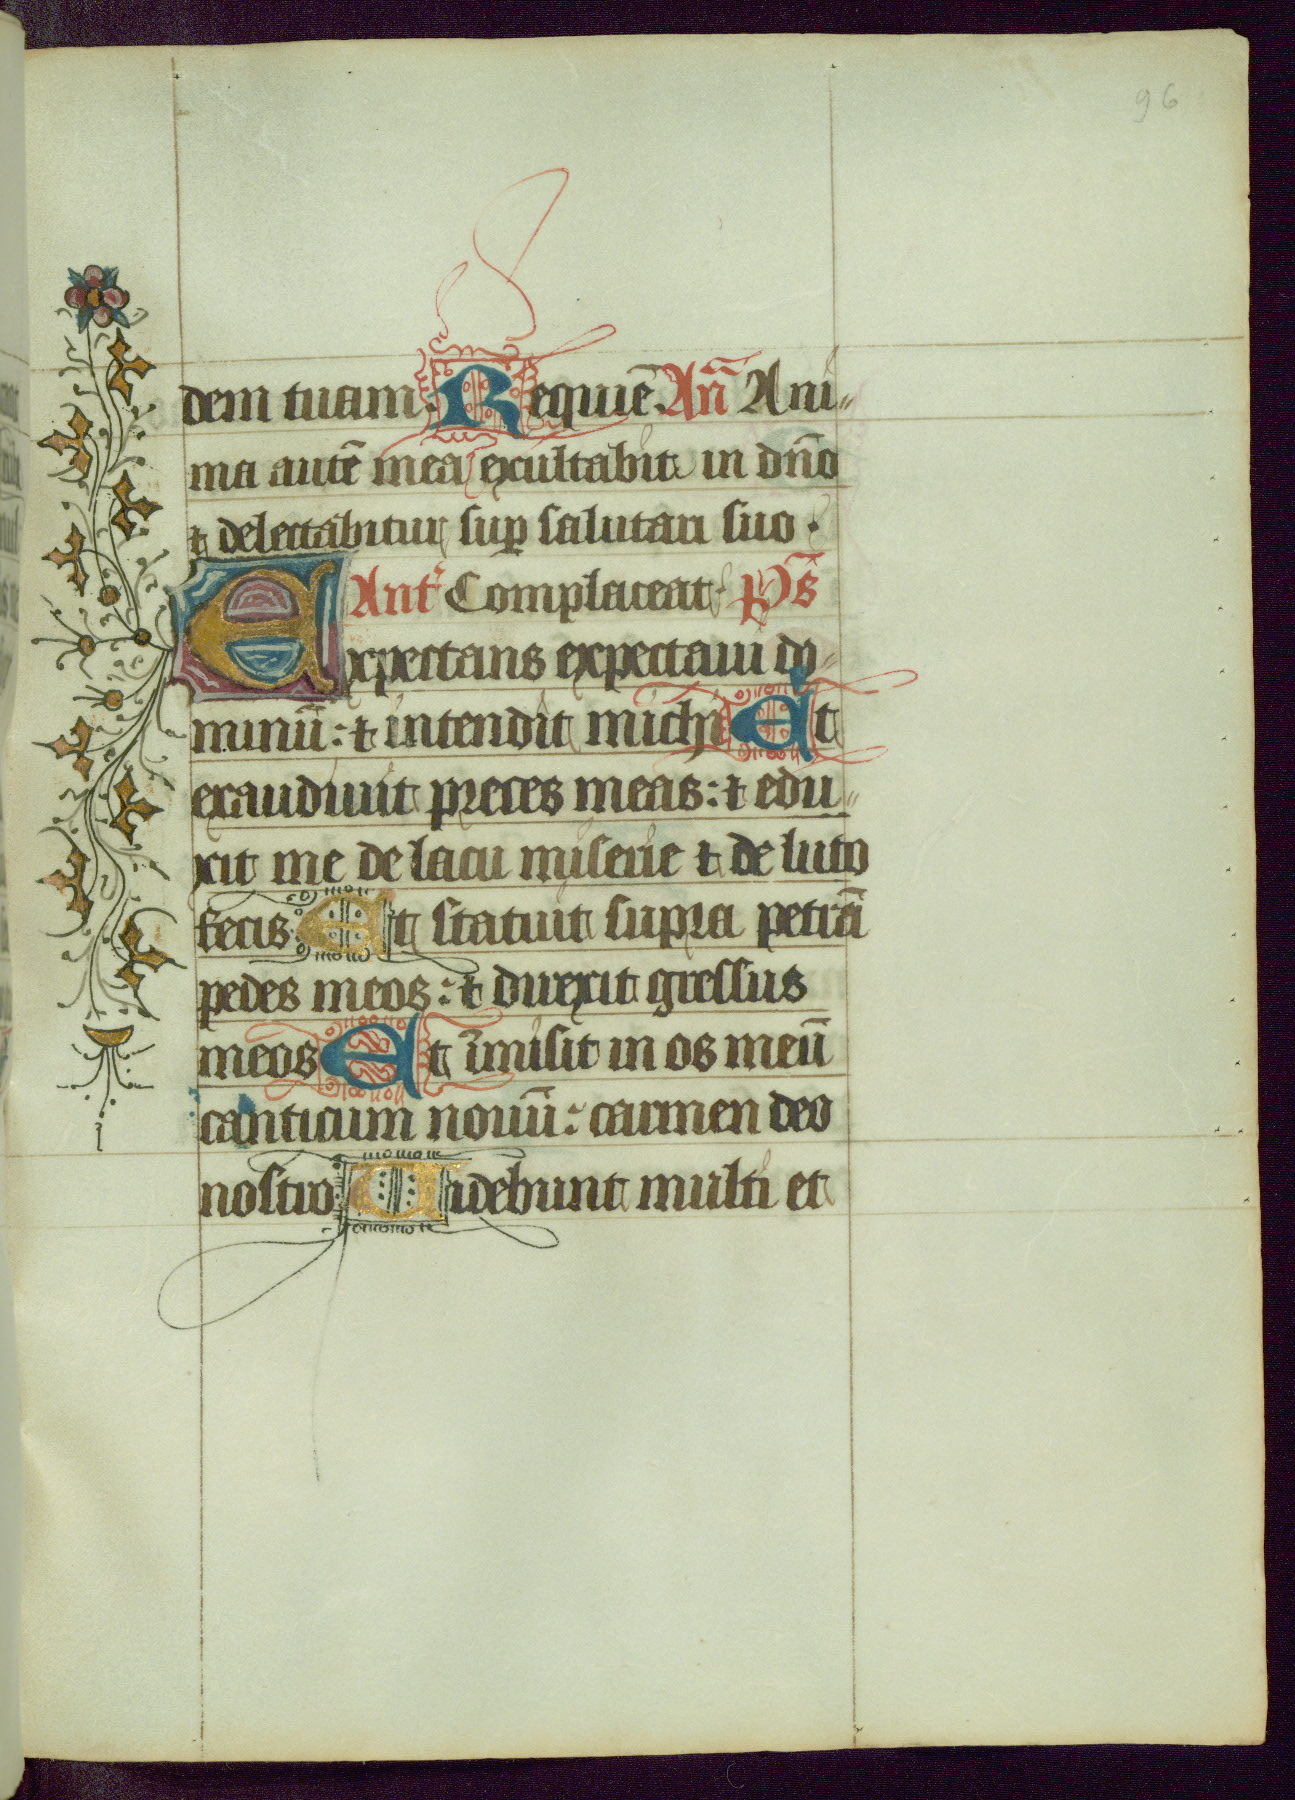 96
dem tuam. Requiē. An̄ Ani〃
ma autē mea exultabit in dn̄o
⁊ delectabitur suꝑ salutari suo.
Antᵃ Complaceat. Ps̄
Expectans expectaui do〃
minū: ⁊ intendit michi Et
exaudiuit preces meas: ⁊ edu〃
xit me de lacu miserie ⁊ de luto
fecis Et statuit supra petrā
pedes meos: ⁊ direxit gressus
meos Et īmisit in os meū
canticum nouū: carmen deo
nostro Uidebunt multi et